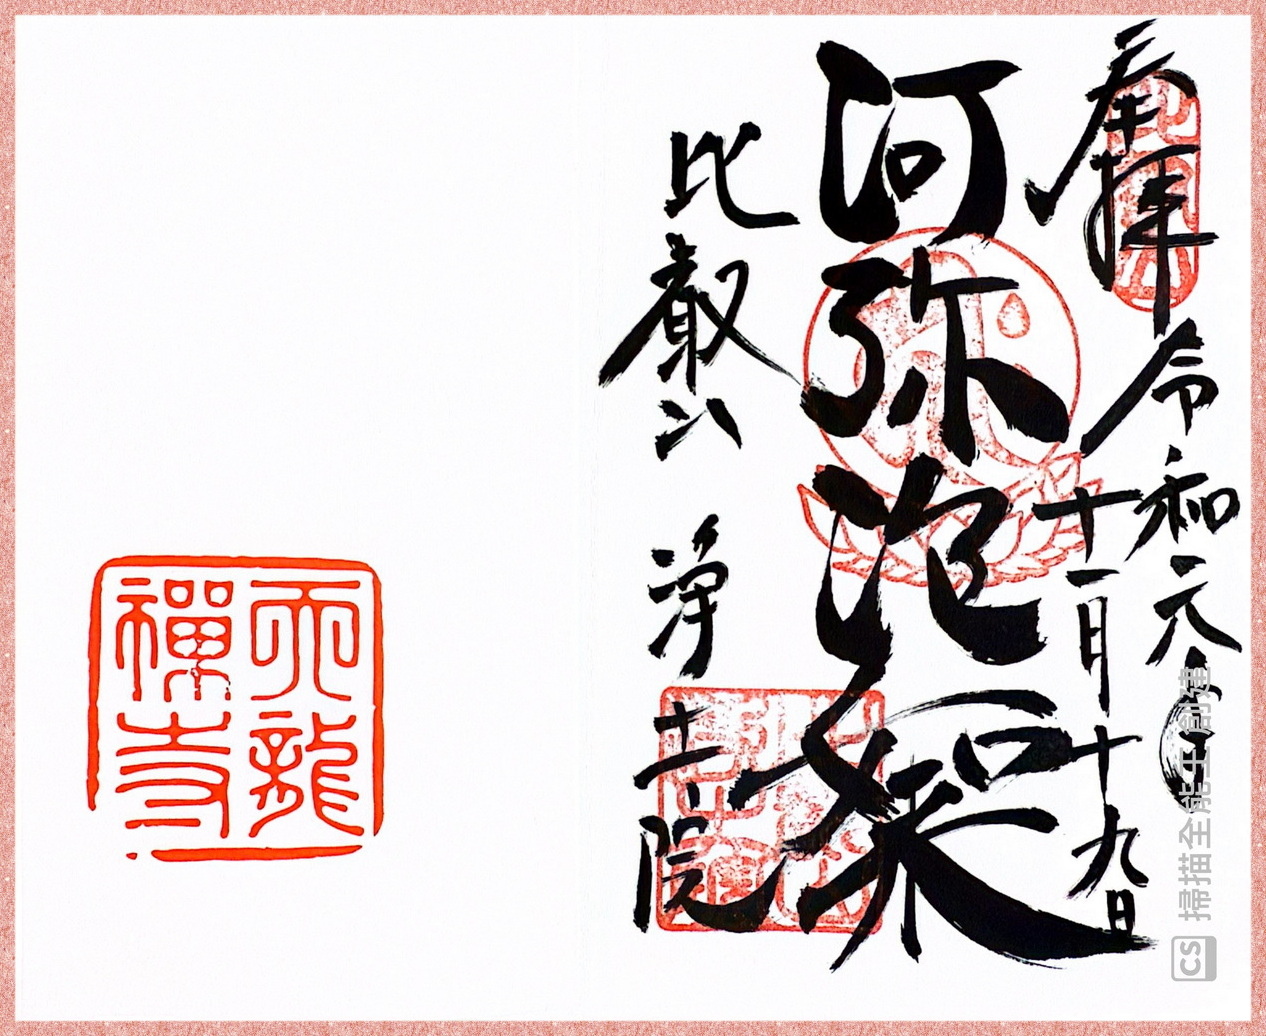 奉拝
令和元年
十一月十九日
阿弥陀如来
比叡山
浄土院
天龍
禅寺
CS 掃描全能王 創建